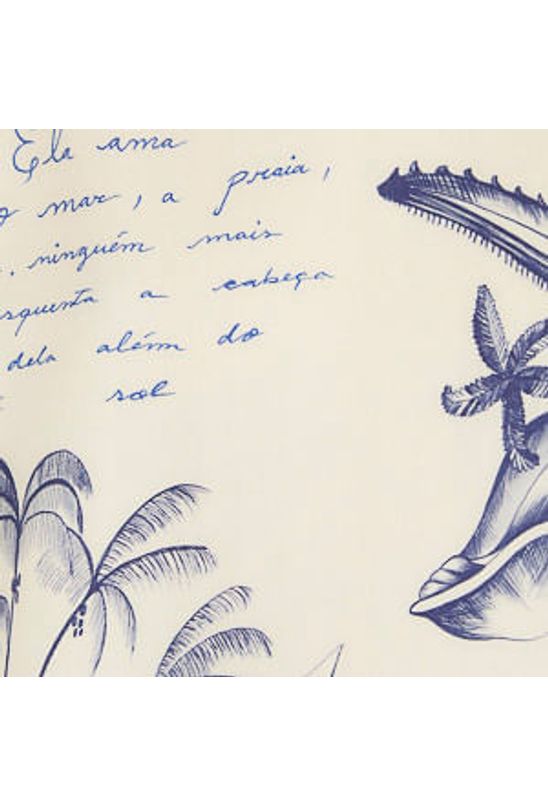 Ela ama
o mar, a praia,
ninguém mais
esquenta a cabeça
dela além do
sol